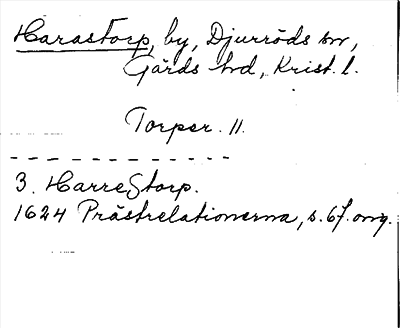 Harastorp, by, Djurröds sn,
Gärds hd, Krist. l.
Torper. 11.
3. HarreStorp.
1624 Prästrelationerna, s. 67. omg.